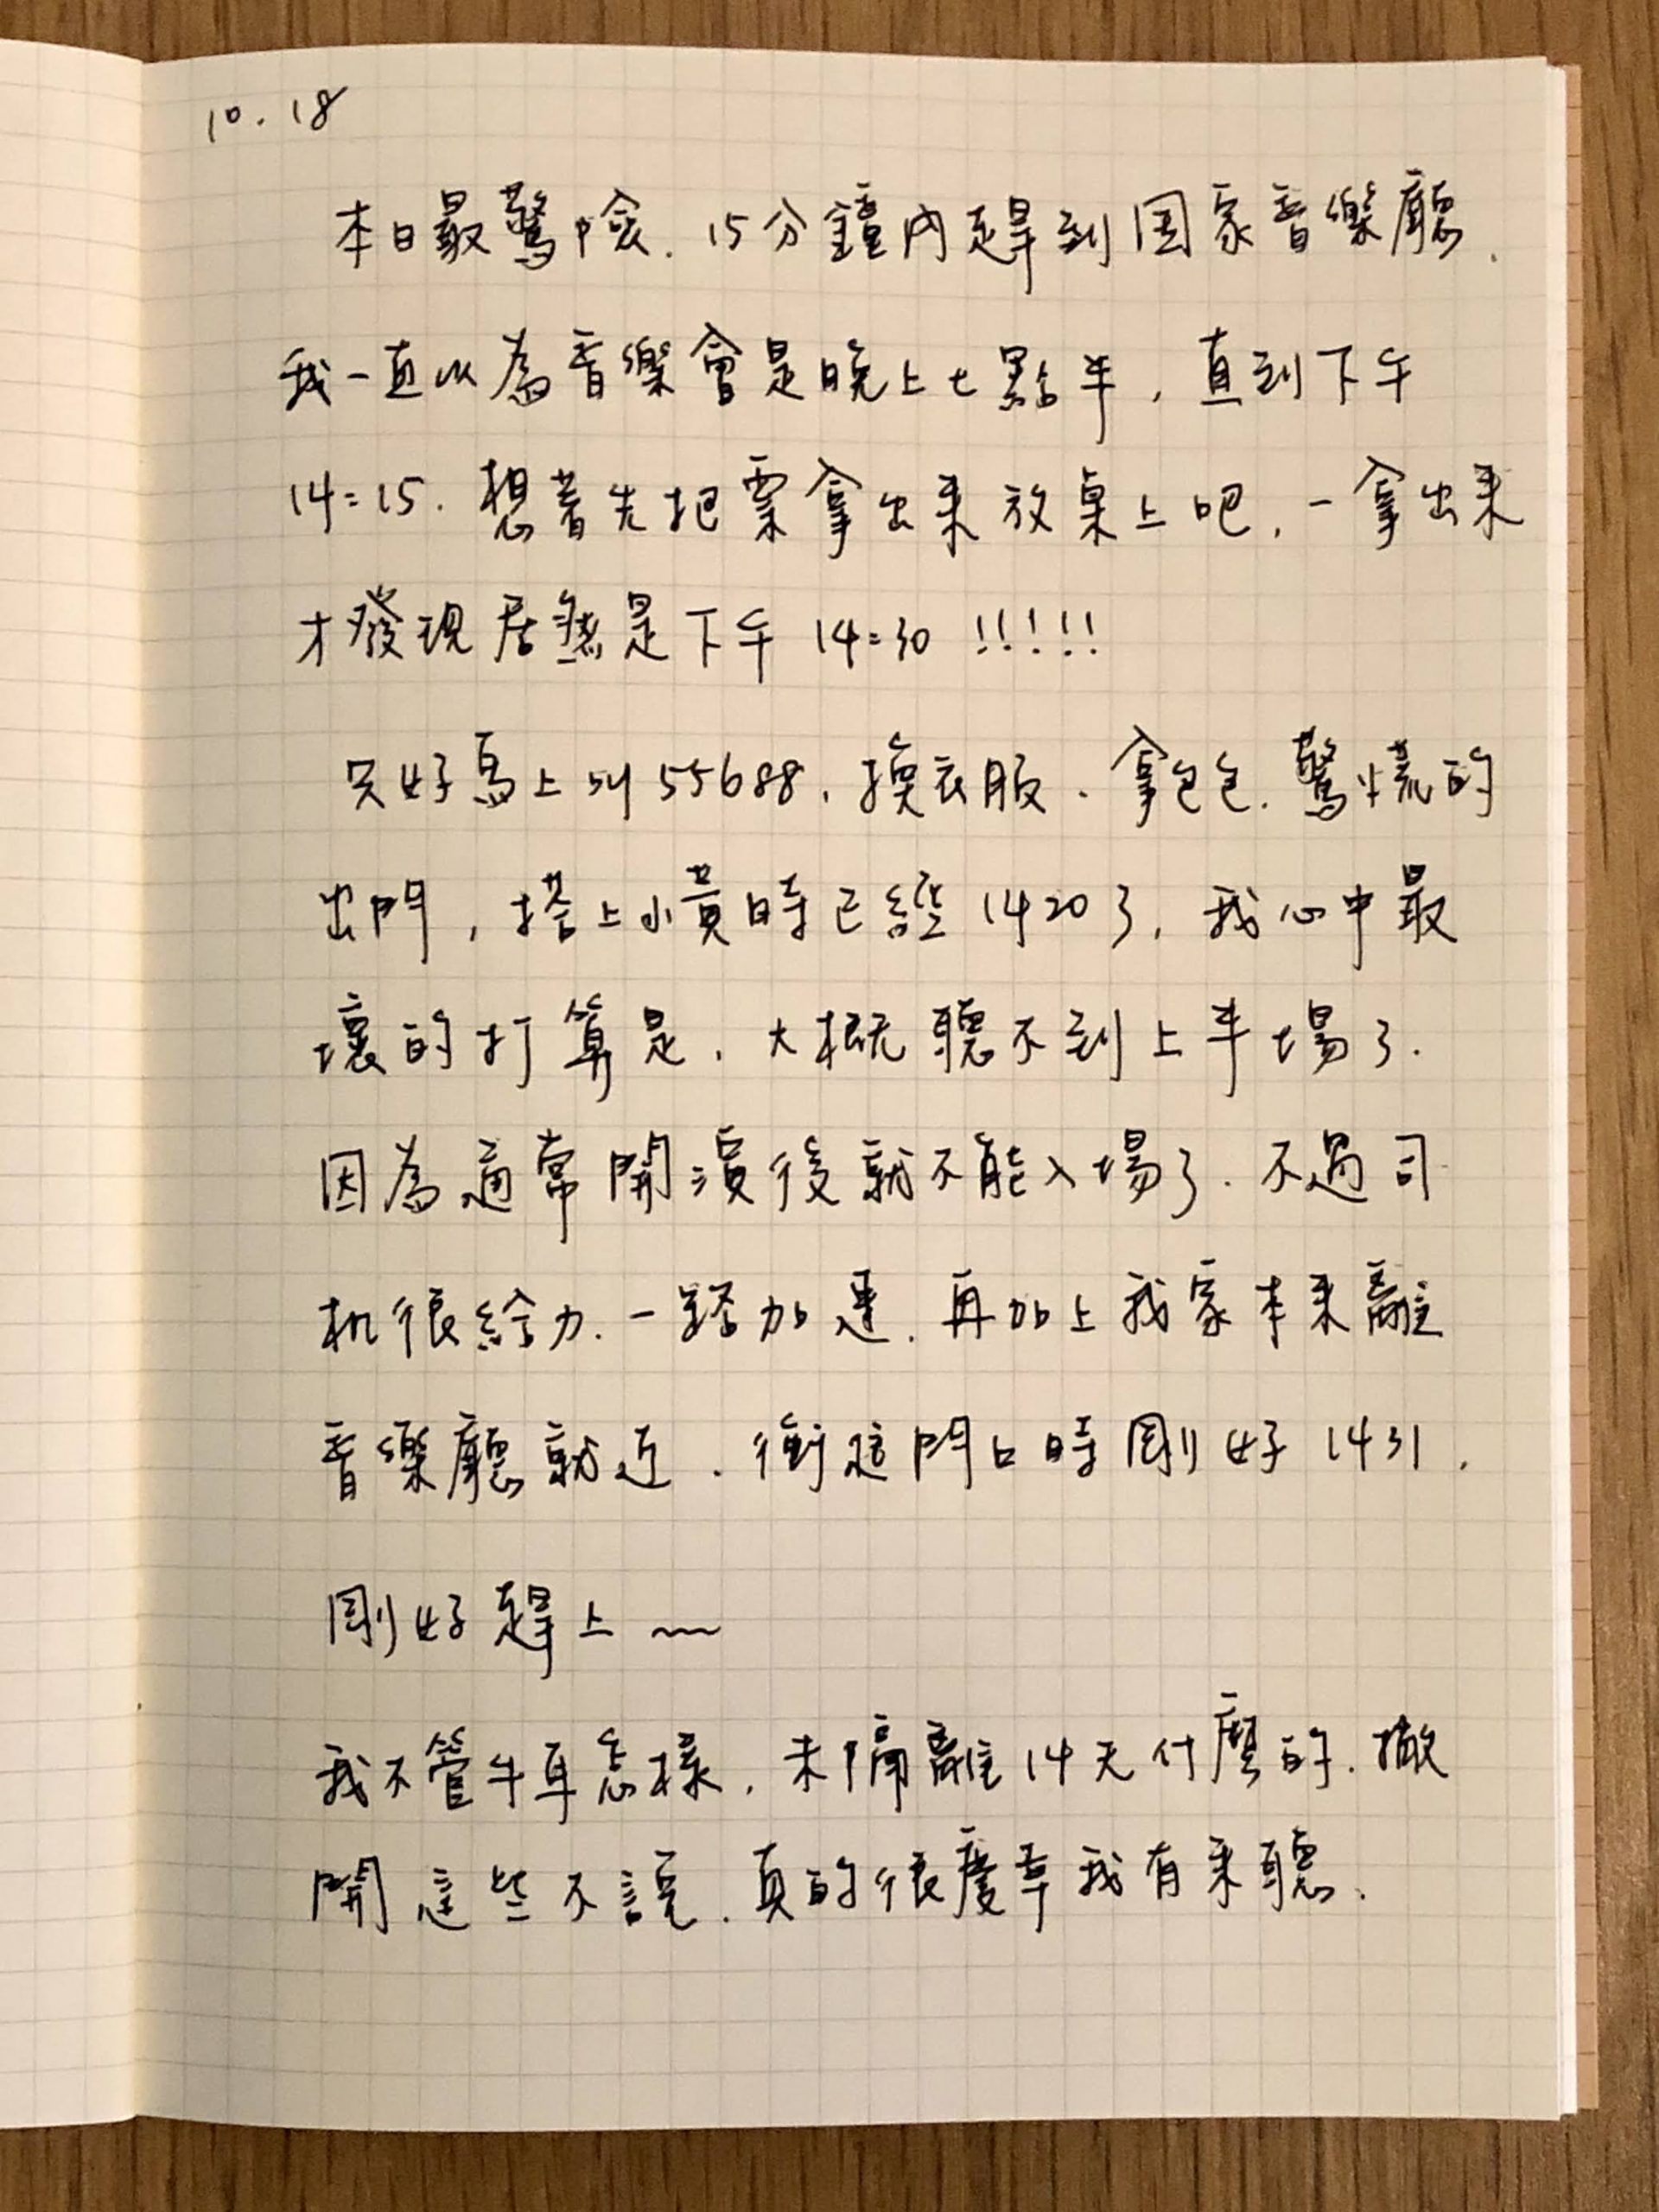 10.18
本日最驚險. 15分鐘內趕到国家音樂廳.
我一直以為音樂會是晚上七點半, 直到下午
14:15. 想著先把票拿出來放桌上吧, 一拿出來
才發現居然是下午 14:30 !!!!!
只好馬上叫55688, 換衣服. 拿包包. 驚慌的
出門, 搭上小黃時已經1420了, 我心中最
壞的打算是, 大概聽不到上半場了.
因為通常開演後就不能入場了. 不過司
机很給力. 一路加速. 再加上我家本來離
音樂廳就近. 衝這門口時剛好1431.
剛好趕上~~
我不管牛耳怎樣, 未隔離14天什麼的. 撇
開這些不說. 真的很慶幸我有來聽.